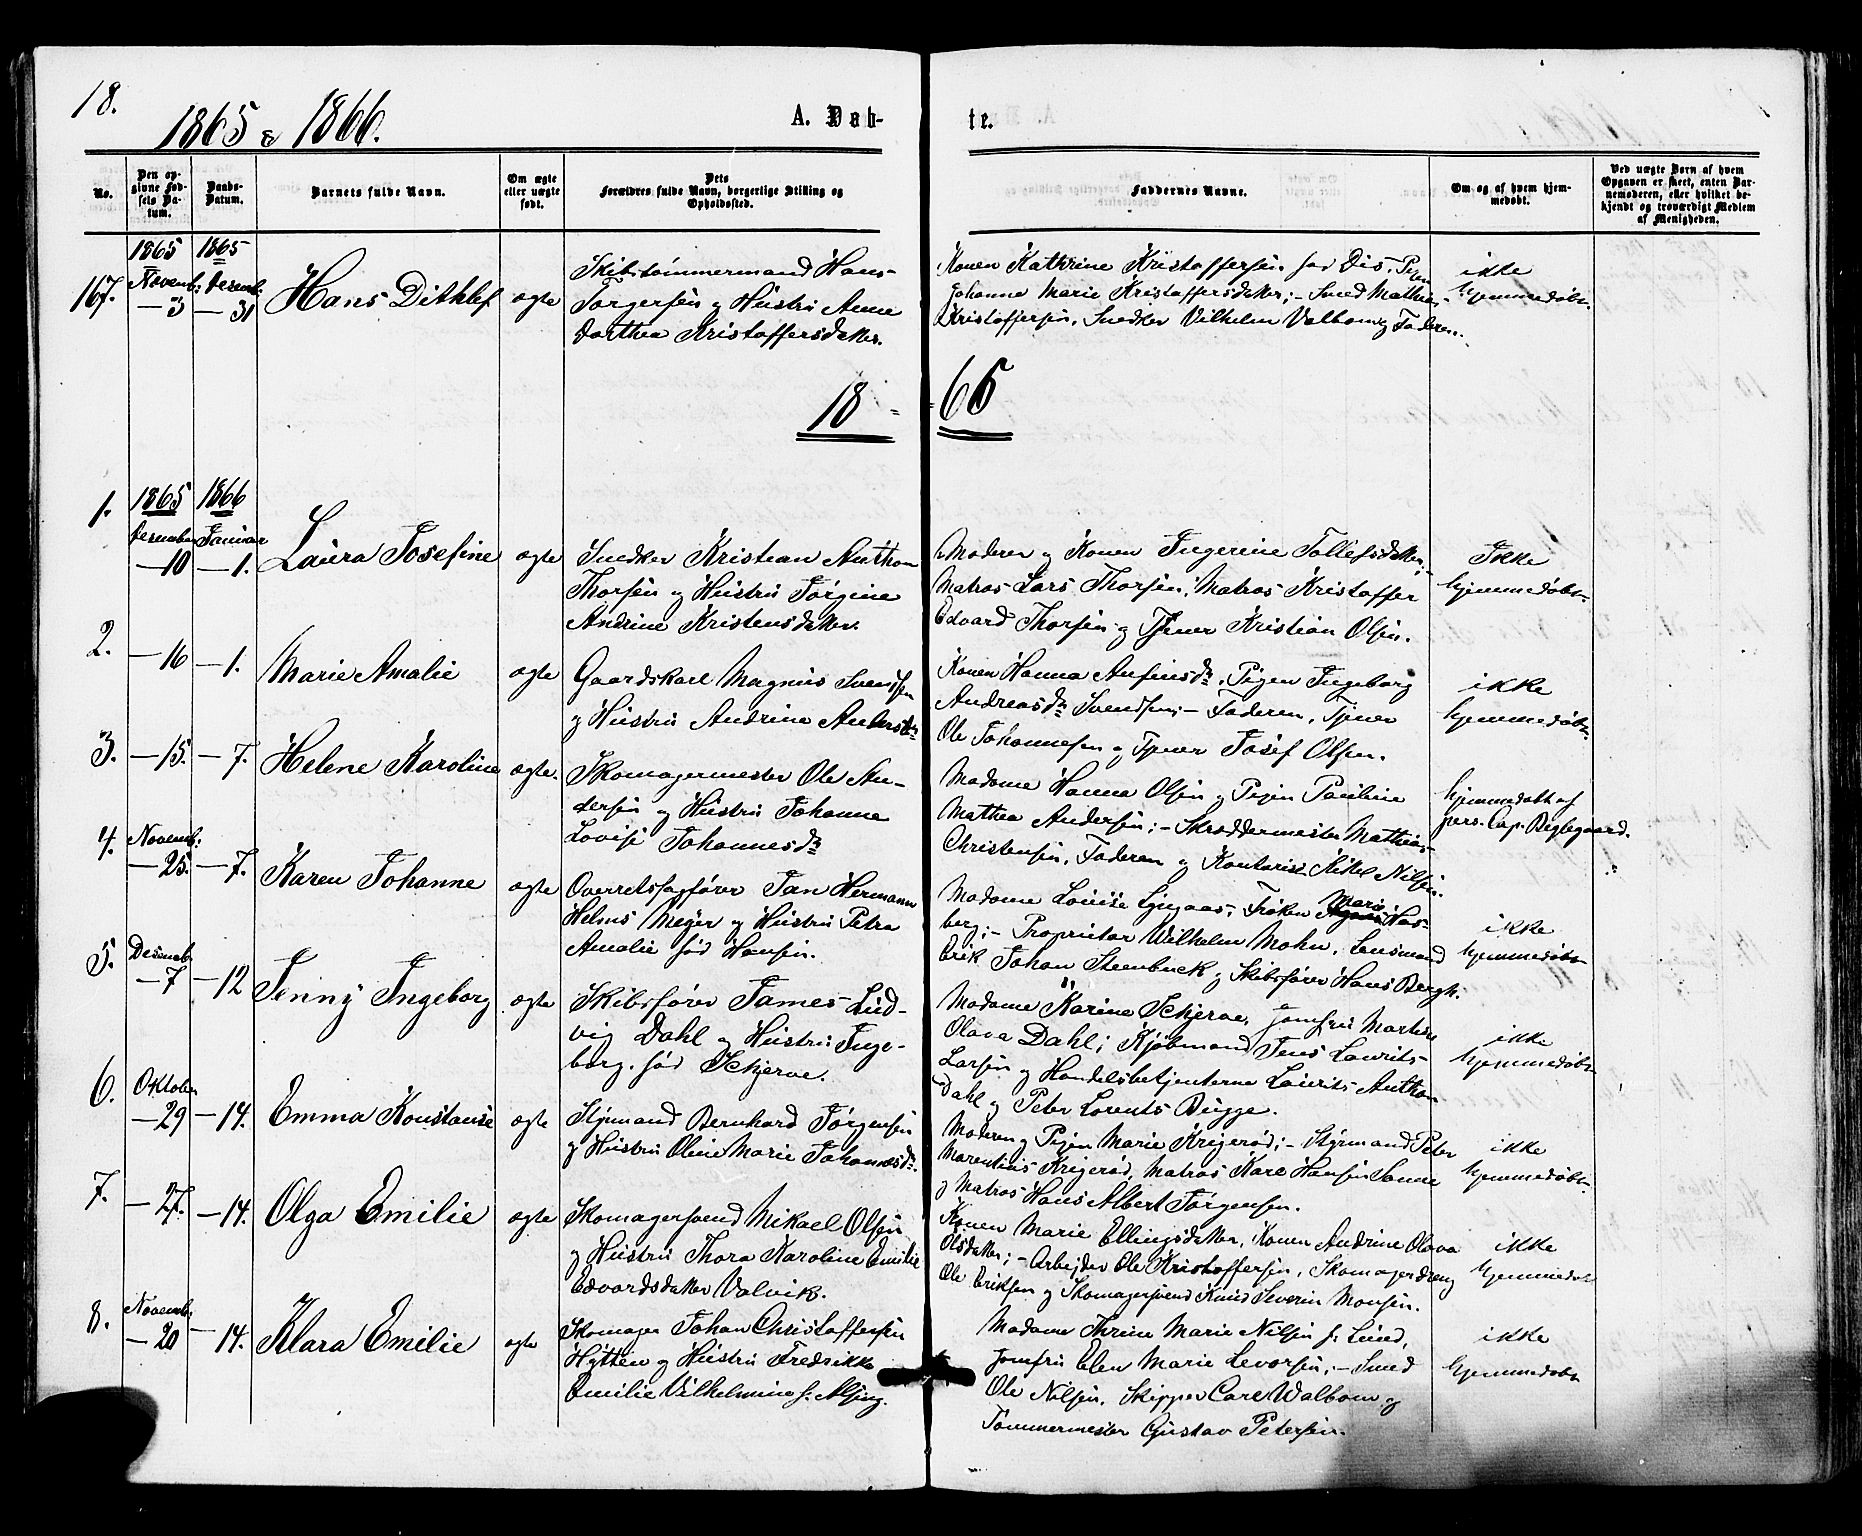 18.
1865 & 1866.
A. Døb-
te.
No.
Den op-
givne Fød-
sels Da-
tum.
Daabs-
Datum.
Barnets fulde Navn.
Om ægte
eller uægte
født.
Dets
Forældres fulde Navn, borgerlige Stilling og
Opholdssted.
Faddernes Navne.
Om og af hvem hjem-
medøbt.
Ved uægte Børn af hvem
Opgaven er skeet, enten Bar-
nemoderen, eller hvilket be-
kjendt og troværdigt Medlem
af Menigheden.
167.
1865
Novemb:
— 3
1865
Desemb.
— 31
Hans Dithlef
ægte
Skibstømmermand Hans
Jørgersen og Hustru Anne
Dorthea Kristoffersdatter.
Konen Kathrine Kristoffersen sad Dis, Pigen
Johanne Marie Kristoffersdatter; – Smed Mathias
Kristoffersen, Snedker Vilhelm Valbom og Faderen.
ikke
hjemmedøbt.
18 = = 65
1.
1865
Desember
— 10
1866
Januar
— 1.
Laura Josefine
ægte
Snedker Kristian Anthon
Thorsen og Hustru Jørgine
Andrine Kristensdatter.
Moderen og Konen Ingerine Tollefsdatter;
Matros Lars Thorsen, Matros Kristoffer
Edvard Thorsen og Tjener Kristian Olsen.
Ikke
hjemmedøbt.
2.
— 16
— 1.
Marie Amalie
ægte
Gaardskarl Magnus Svendsen
og Hustru Andrine Andersdtr
Konen Hanna Anfinsdr, Pigen Ingeborg
Andreasdr Svendsen; – Faderen, Tjener
Ole Johannesen og Tjener Josef Olsen.
ikke
hjemmedøbt.
3.
— 15.
— 7.
Helene Karoline
ægte.
Skomagermester Ole An-
dersen og Hustru Johanne
Lovise Johannesdr
Madame Hanna Olsen og Pigen Pauline
Mathea Andersen; – Skræddermester Mathias
Christensen, Faderen og Kontorist Mikel Nilsen.
hjemmedøbt af
pers. Cap. Reglegaard.
4.
Novemb:
— 25.
— 7.
Karen Johanne
ægte
Overretssagfører Jan Hermann
Helms Meyer og Hustru Petra
Amalie fød Hansen.
Madame Louise Lyngaas, Frøken Marie Has-
berg; – Proprietær Wilhelm Mohn, Lensmand
Erik Johan Steenbuck og Skibsfører Hans Bergh.
ikke
hjemmedøbt.
5.
Desemb.
— 7
— 12
Jenny Ingeborg
ægte
Skibsfører James Lud-
vig Dahl og Hustru Inge-
borg fød Schjerve.
Madame Karine Schjerve, Jomfru Martine
Olava Dahl; Kjøbmand Jens Laurits
Larsen og Handelsbetjenterne Laurits Anthon
Dahl og Peter Lorents Bugge.
ikke
hjemmedøbt
6.
Oktober
— 29
— 14.
Emma Konstanse
ægte
Styrmand Bernhard Jørgensen
og Hustru Oline Marie Johannesdr
Moderen og Pigen Marie Krigerød; – Styrmand Peter
Marentius Krigerød, Matros Karl Hansen Sanne
og Matros Hans Albert Jørgensen.
ikke
hjemmedøbt.
7.
— 27.
— 14.
Olga Emilie
ægte
Skomagersvend Mikael Olsen
og Hustru Thora Karoline Emilie
Edvardsdatter Valvik.
Konen Marie Ellingsdatter, Konen Andrine Olava
Olsdatter; – Arbejder Ole Kristoffersen, Skomagerdreng
Ole Eriksen og Skomagersvend Knud Severin Monsen.
ikke
hjemmedøbt
8.
Novemb.
— 20
— 14.
Klara Emilie
ægte
Skomager Johan Christoffersen
Hytten og Hustru Fredrikke
Emilie Vilhelmine f.
Madame Thrine Marie Nilsen f. Lund,
Jomfru Elen Marie Levorsen; – Smed
Ole Nilsen, Skipper Carl Walbom og
Tømmermester Gustav Petersen.
ikke
hjemmedøbt